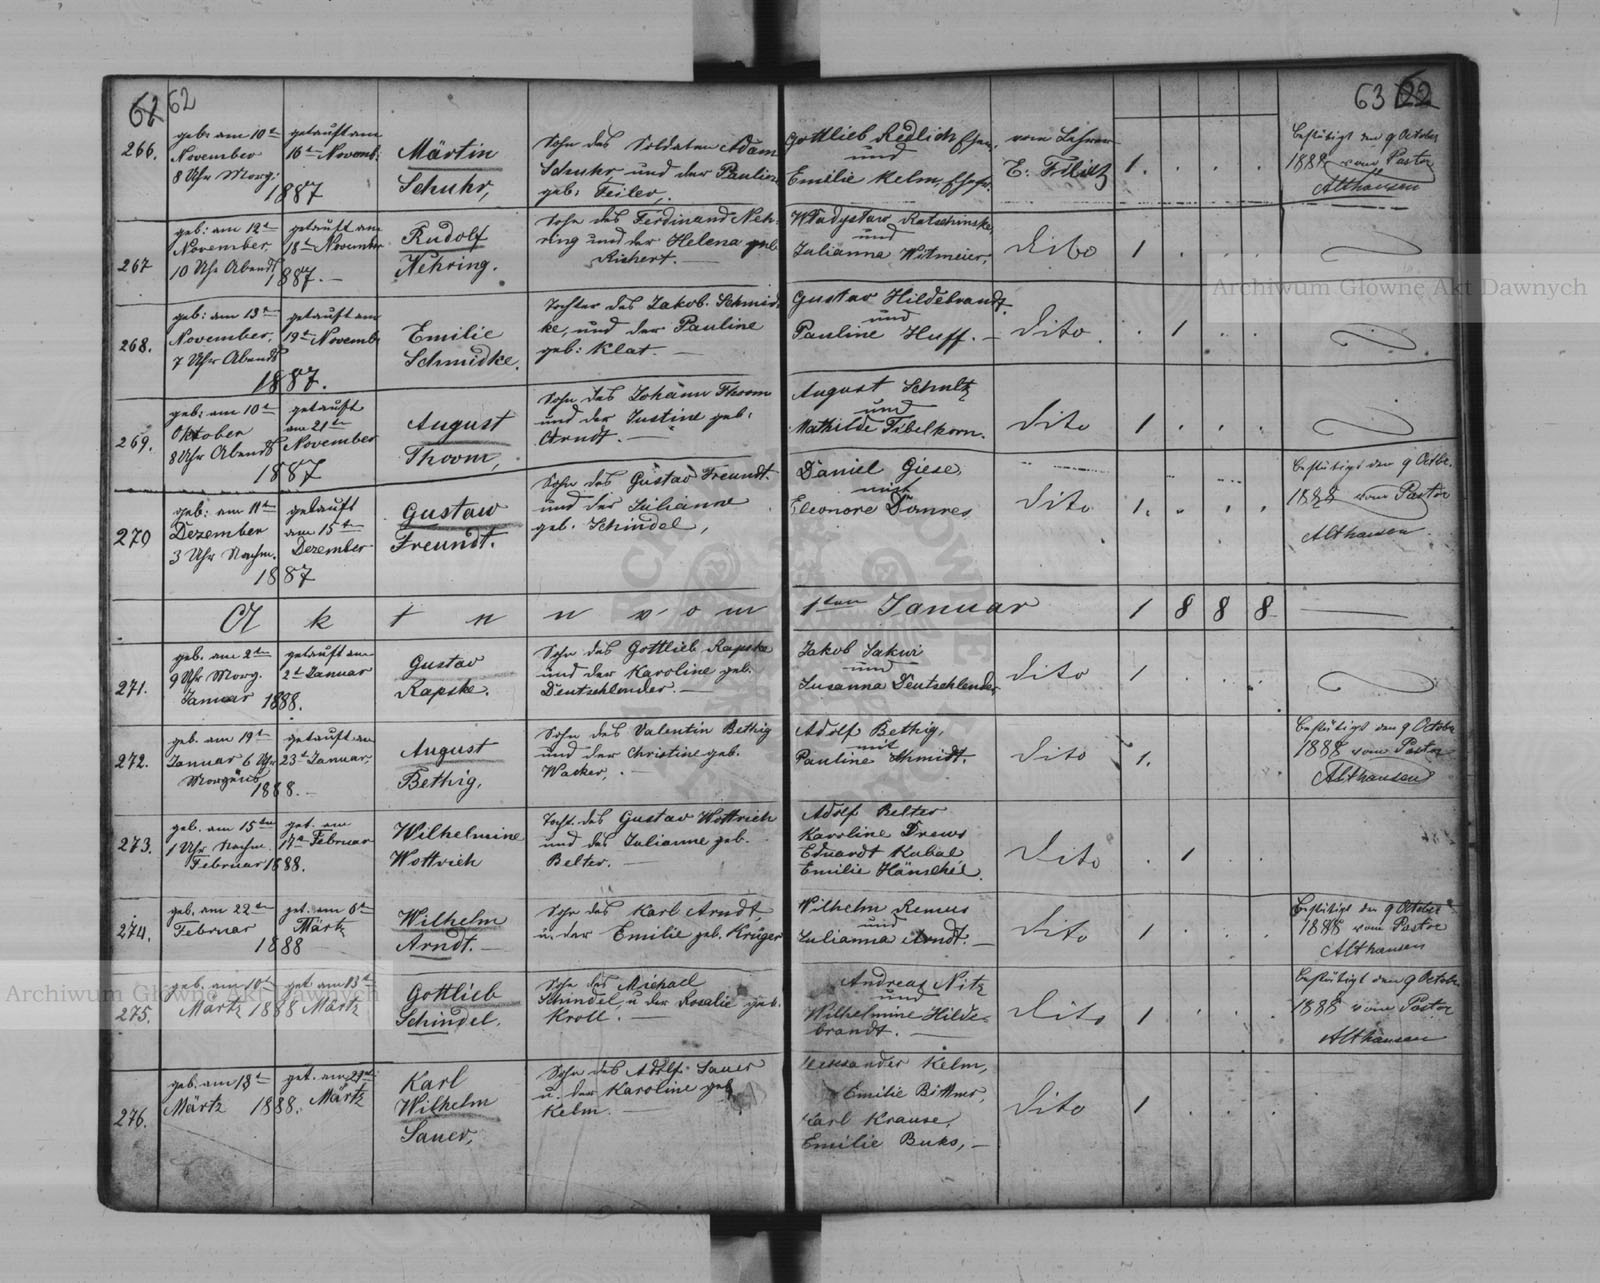 62 62
266.
geb: am 10ten
November
8 Uhr Morg:
getauft am
16ten Novemb:
1887
Märtin
Schuhr,
Sohn des Soldaten Adam
Schuhr und der Pauline
geb: Feiler,
267
geb: am 12ten
November
10 Uhr Abends
getauft am
18ten November
1887. —
Rudolf
Nehring.
Sohn des Ferdinand Neh-
ring und der Helena geb
Richert. —
268.
geb: am 13ten
November,
7 Uhr Abends
getauft am
19ten Novemb:
1887.
Emilie
Schmidke.
Tochter des Jakob Schmid-
ke, und der Pauline
geb: Klat. —
269.
geb: am 10ten
Oktober
8 Uhr Abends
getauft
am 21ten
November
1887
August
Thoom,
Sohn des Johann Thoom
und der Justine geb:
Arndt. —
270
geb: am 11ten
Dezember
3 Uhr Nachm.
getauft
am 15ten
Dezember
1887
Gustaw
Freundt.
Sohn des Gustav Freundt.
und der Julianne
geb. Schindel,
A k t n n v o m
271.
geb. am 2ten
9 Uhr Morg.
Januar
getauft am
2ten Januar
1888.
Gustav
Rapske.
Sohn des Gottlieb Rapske
und der Karoline geb.
Deutschlender. —
272.
geb. am 19ten
Januar 6 Uhr
Morgens
getauft am
23ten Januar,
1888. —
August
Bethig,
Sohn des Valentin Bethig
und der Christine geb.
Wacker, . —
273.
geb. am 15ten
1 Uhr Nachm.
Februar
get. am
17ten Februar
1888.
Wilhelmine
Wottrich
Tocht. des Gustav Wottrich
und der Julianne geb.
Belter. —
274.
geb. am 22ten
Februar
get. am 6ten
Märtz
1888
Wilhelm
Arndt. —
Sohn des Karl Arndt,
u. der Emilie geb. Krüger
275.
geb. am 10ten
Märtz 1888
get. am 13ten
Märtz
Gottlieb
Schindel.
Sohn des Michael
Schindel, u der Rosalie geb.
Kroll. —
276.
geb. am 18ten
Märtz 1888.
get. am 29ten
Märtz
Karl
Wilhelm
Sauer,
Sohn des Adolf Sauer
u. der Karoline geb
Kelm. —
63 62
Gottlieb Redlich
und
Emilie Kelm,
vom Lehrer
E. Filitz
1. . . .
Bestätigt den 9 October
1888 vom Pastor
Althausen
Władysław Ratschinske,
und
Julianna Witmeier,
dito
1 . . .
Gustav Hildebrandt.
und
Pauline Huff. —
dito
. 1 . .
August Schultz
und
Mathilde Fibelkorn.
dito
1 . . .
Daniel Giese,
mit
Eleonore Domres
dito
1. . . .
Bestätigt den 9 Octbr.
1888 vom Pastor
Althausen
1ten Januar 1 8 8 8
Jakob Sakwi
und
Susanna Deutschlender
dito
1 . . .
Adolf Bethig,
mit
Pauline Schmidt.
dito
1.
Bestätigt den 9 October
1888 vom Pastor
Althausen
Adolf Belter
Karoline Drews
Eduardt Kubal
Emilie Hänschel.
dito
. 1 . .
Wilhelm Remus
und
Julianna Arndt. —
dito
1 . . .
Bestätigt den 9 October
1888 vom Pastor
Althausen
Andreas Nitz
und
Wilhelmine Hilde-
brandt. —
dito
1 . . .
Bestätigt den 9 October
1888 vom Pastor
Althausen
Kelm,
Emilie Bittner,
Karl Krause,
Emilie Buks, —
dito
1 . . .
Archiwum Główne Akt Dawnych
Archiwum Główne Akt Dawnych